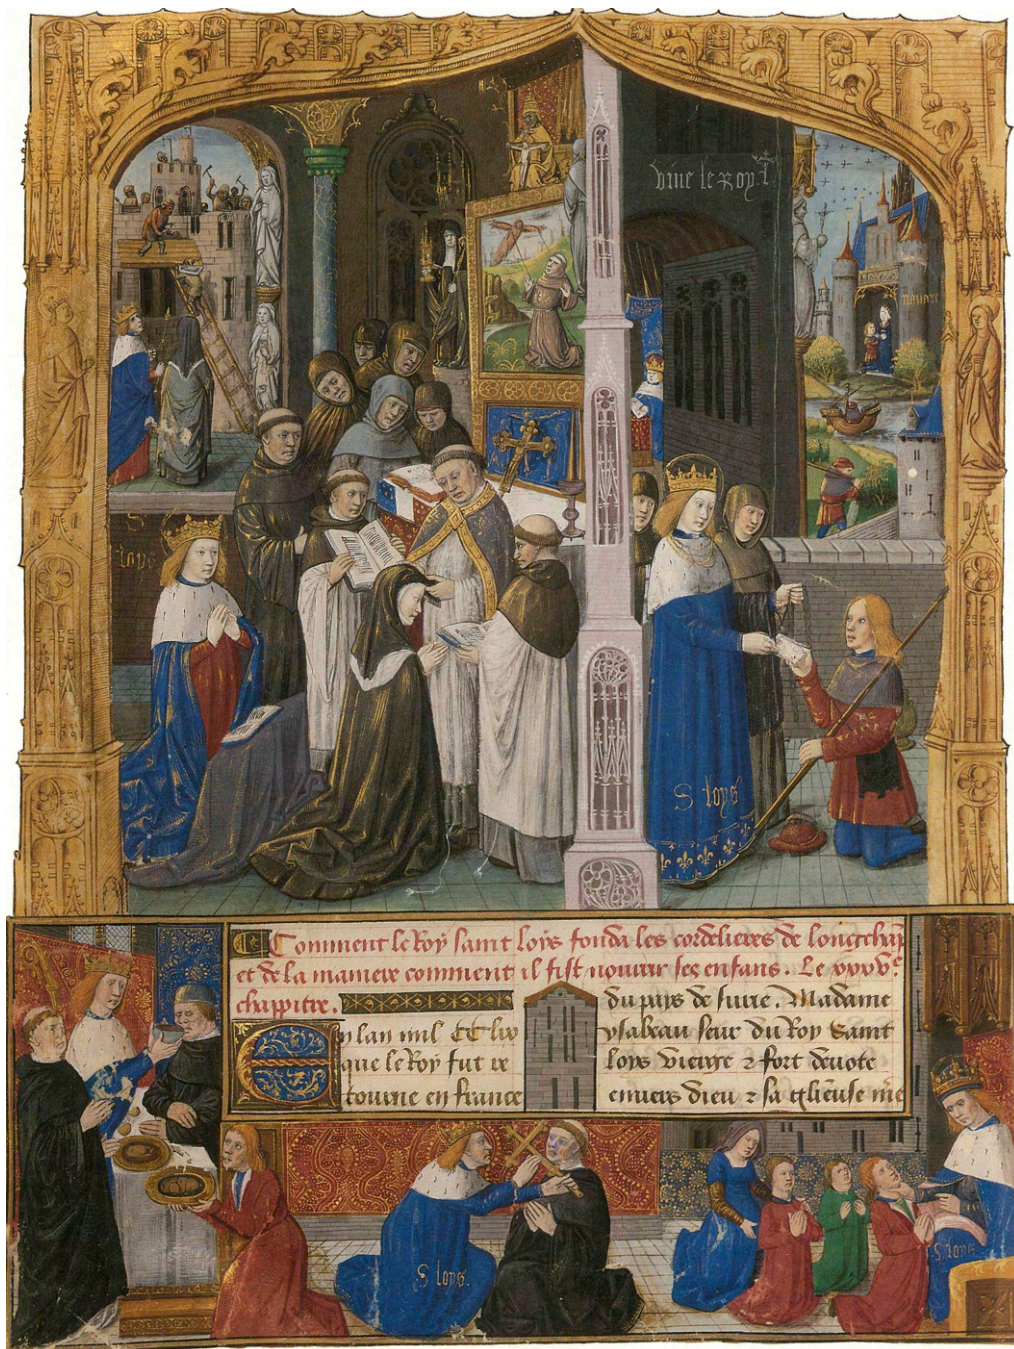 vive le Roy
navare
S
loys
S loys
Comment le Roy saint loys fonda les cordelieres de longchãp
et de la maniere comment il fist nourir ses enfans. Le
chapitre.
En lan mil CC
que le Roy fut re
tourne en france
du pays de surie. Madame
ysabeau seur du Roy Saint
loys vierge & fort devote
envers dieu &
S loys
S loys